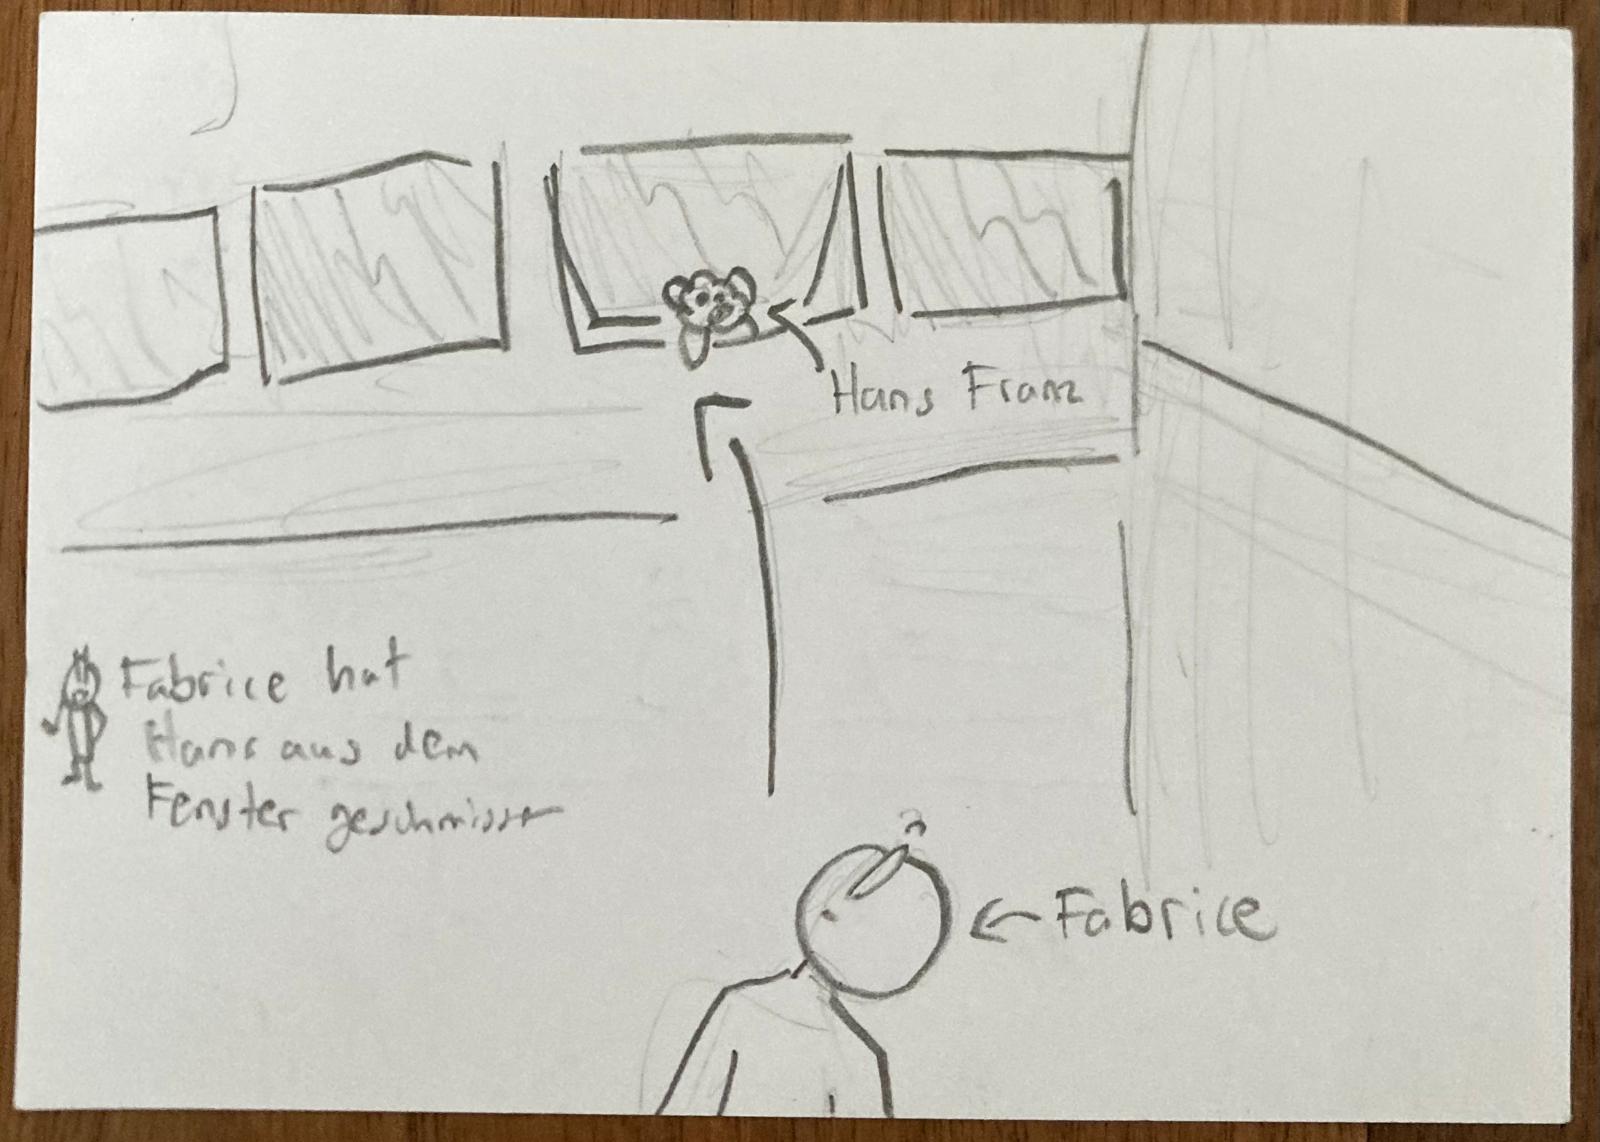 Hans Franz
Fabrice hat
Hans aus dem
Fenster geschmissen
Fabrice